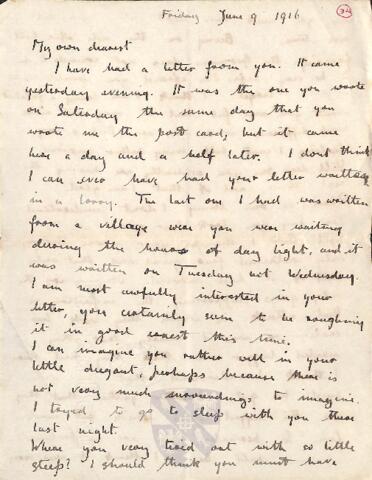 Friday June 9 1916
34
My own dearest
I have had a letter from you. It came
yesterday evening. It was the one you wrote
on Saturday the same day that you
wrote me the post card, but it came
here a day and a half later. I dont think
I can ever have had your letter written
in a lorry. The last one I had was written
from a village wear you wear waiting
during the hours of day light, and it
was written on Tuesday not Wednesday.
I am most awfully interested in your
letter, you certainly seem to be roughing
it in good earest this time.
I can imagine you rather well in your
little dugout, perhaps because there is
not very much surroundings to imagine.
I tryed to go to sleep with you there
last night.
Where you very tierd out with so little
sleep? I should think you must have